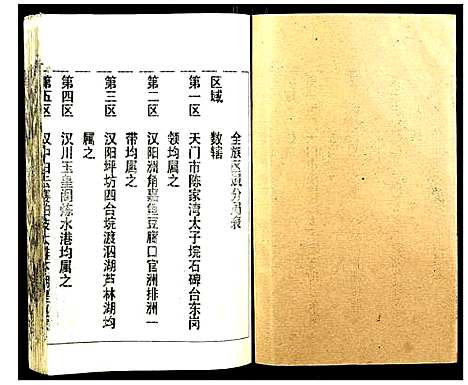 全族区域分布表
区域 数辖
第一区 天门市陈家湾太子垸石碑台东岗
领均属之
第二区 汉阳洲角嘉鱼豆腐口官洲排洲一
带均属之
第三区 汉阳坪坊四台垸渡泗湖芦林湖均
属之
第四区 汉川玉皇阁炼水港均属之
第五区